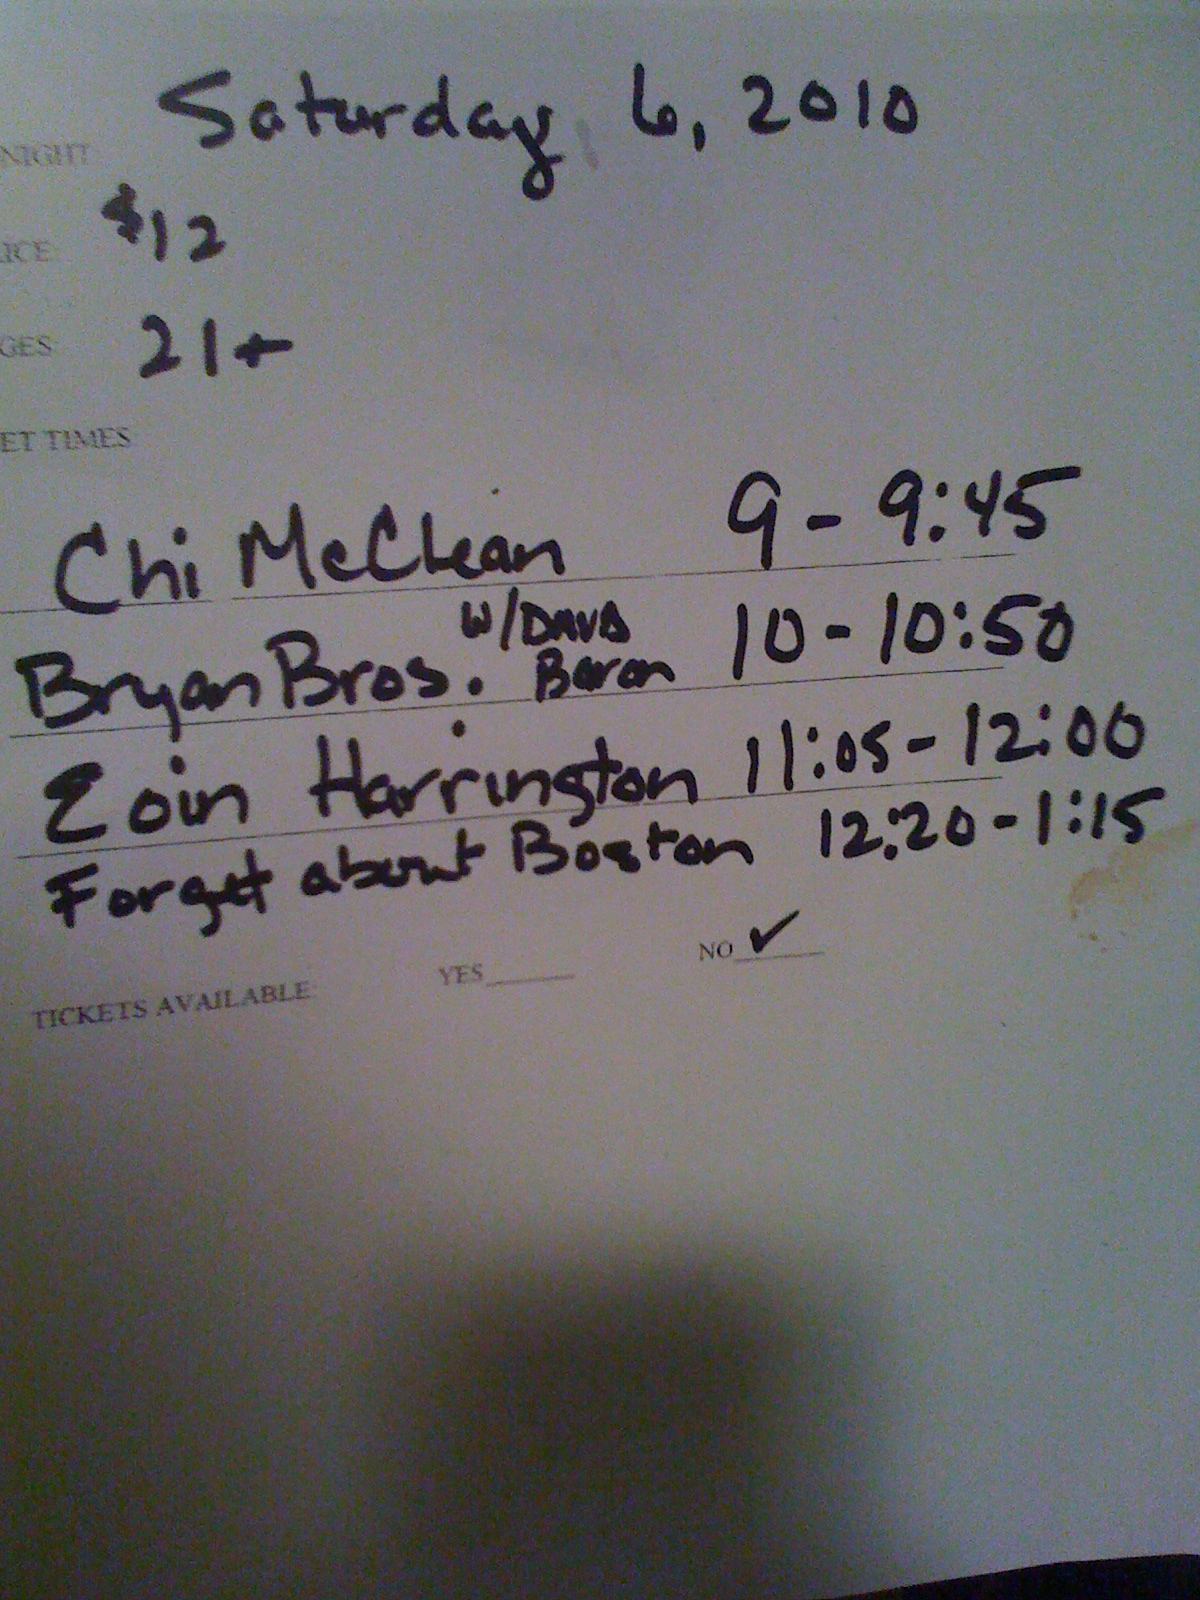 Saturday, 6, 2010
NIGHT
$12
RICE:
21+
GES
ET TIMES
Chi McClean 9 - 9:45
Bryan Bros. w/ DAVID Baron 10 - 10:50
Eoin Harrington 11:05 - 12:00
Forget about Boston 12:20 - 1:15
TICKETS AVAILABLE: YES____ NO ✓